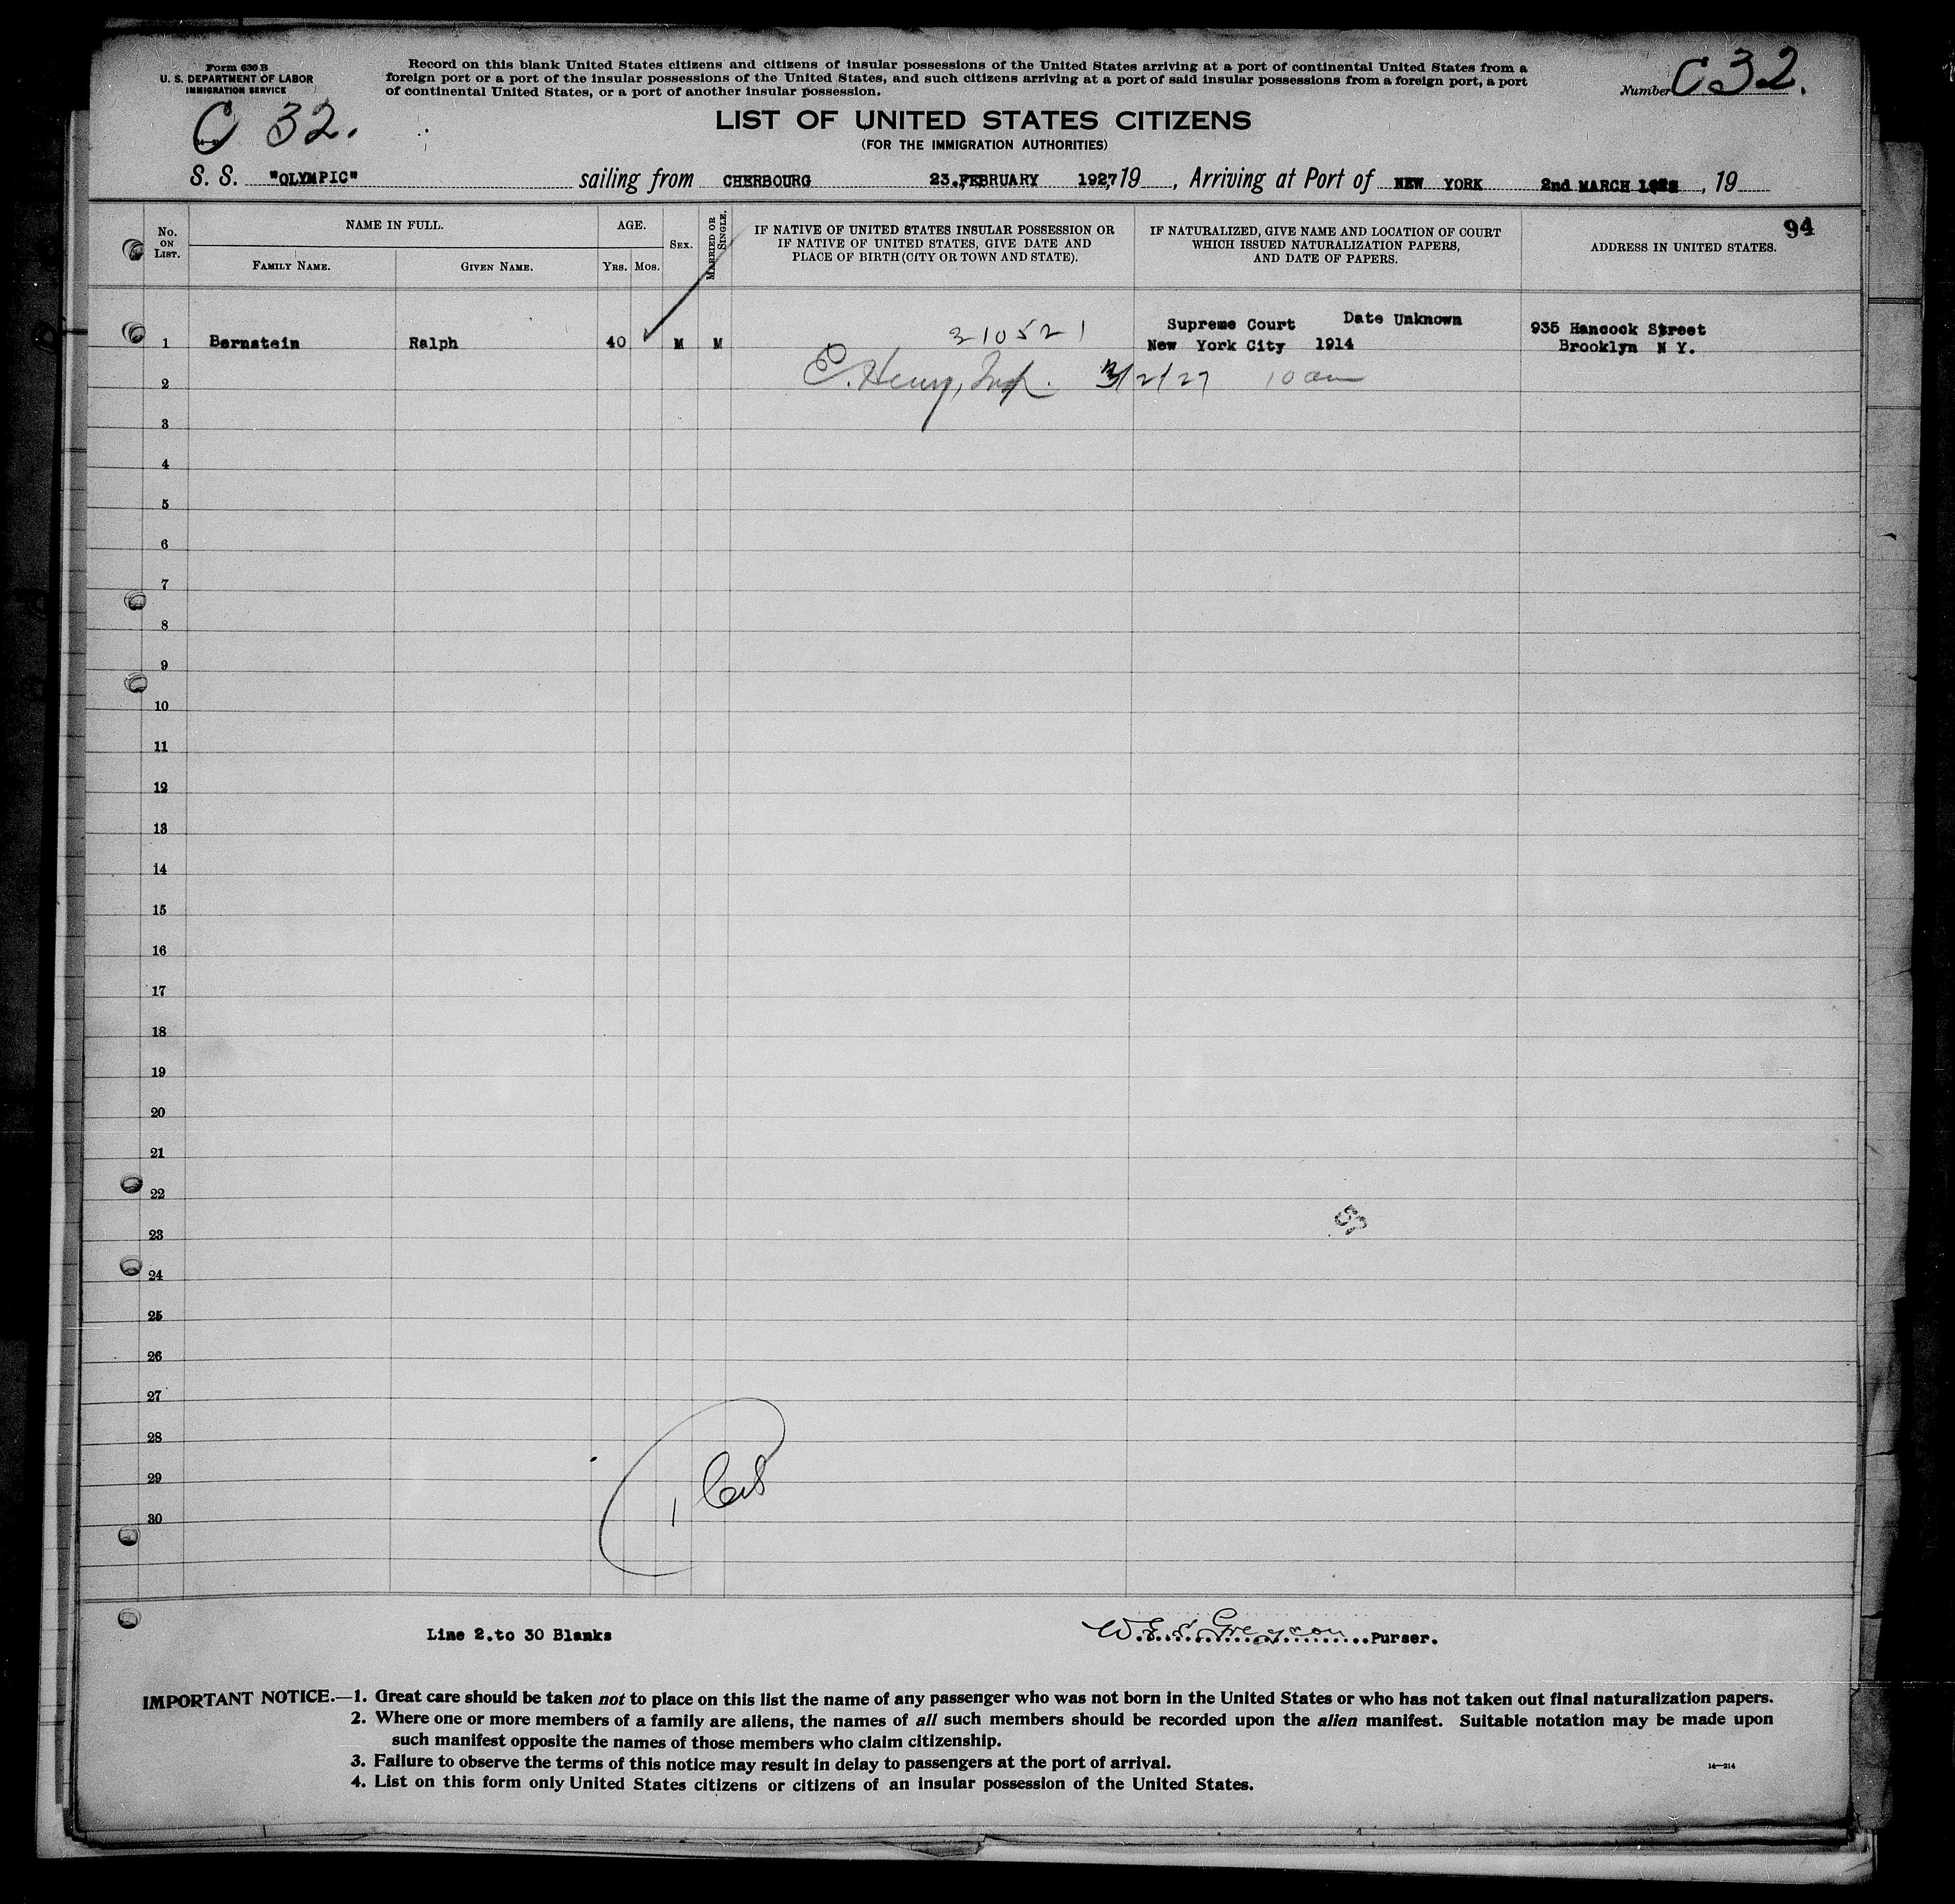 Form 630 B
U. S. DEPARTMENT OF LABOR
IMMIGRATION SERVICE
Record on this blank United States citizens and citizens of insular possessions of the United States arriving at a port of continental United States from a
foreign port or a port of the insular possessions of the United States, and such citizens arriving at a port of said insular possessions from a foreign port, a port
of continental United States, or a port of another insular possession.
Number C 32.
C 32.
LIST OF UNITED STATES CITIZENS
(FOR THE IMMIGRATION AUTHORITIES)
S. S. "OLYMPIC" sailing from CHERBOURG 23.FEBRUARY 1927, 19 , Arriving at Port of NEW YORK 2nd MARCH , 19
94
No. ON LIST. NAME IN FULL. FAMILY NAME. GIVEN NAME. AGE. YRS. MOS. SEX. MARRIED OR SINGLE.
IF NATIVE OF UNITED STATES INSULAR POSSESSION OR
IF NATIVE OF UNITED STATES, GIVE DATE AND
PLACE OF BIRTH (CITY OR TOWN AND STATE).
IF NATURALIZED, GIVE NAME AND LOCATION OF COURT
WHICH ISSUED NATURALIZATION PAPERS,
AND DATE OF PAPERS.
ADDRESS IN UNITED STATES.
1 Bernstein Ralph 40 M M 310521 Supreme Court Date Unknown
New York City 1914
935 Hancock Street
Brooklyn N Y.
2 E. Henry, Insp. 3/2/27 10 am
3
4
5
6
7
8
9
10
11
12
13
14
15
16
17
18
19
20
21
22
23
24
25
26
27
28
29
30
1
Line 2.to 30 Blanks
Purser.
IMPORTANT NOTICE.—1. Great care should be taken not to place on this list the name of any passenger who was not born in the United States or who has not taken out final naturalization papers.
2. Where one or more members of a family are aliens, the names of all such members should be recorded upon the alien manifest. Suitable notation may be made upon
such manifest opposite the names of those members who claim citizenship.
3. Failure to observe the terms of this notice may result in delay to passengers at the port of arrival.
4. List on this form only United States citizens or citizens of an insular possession of the United States.
14—214